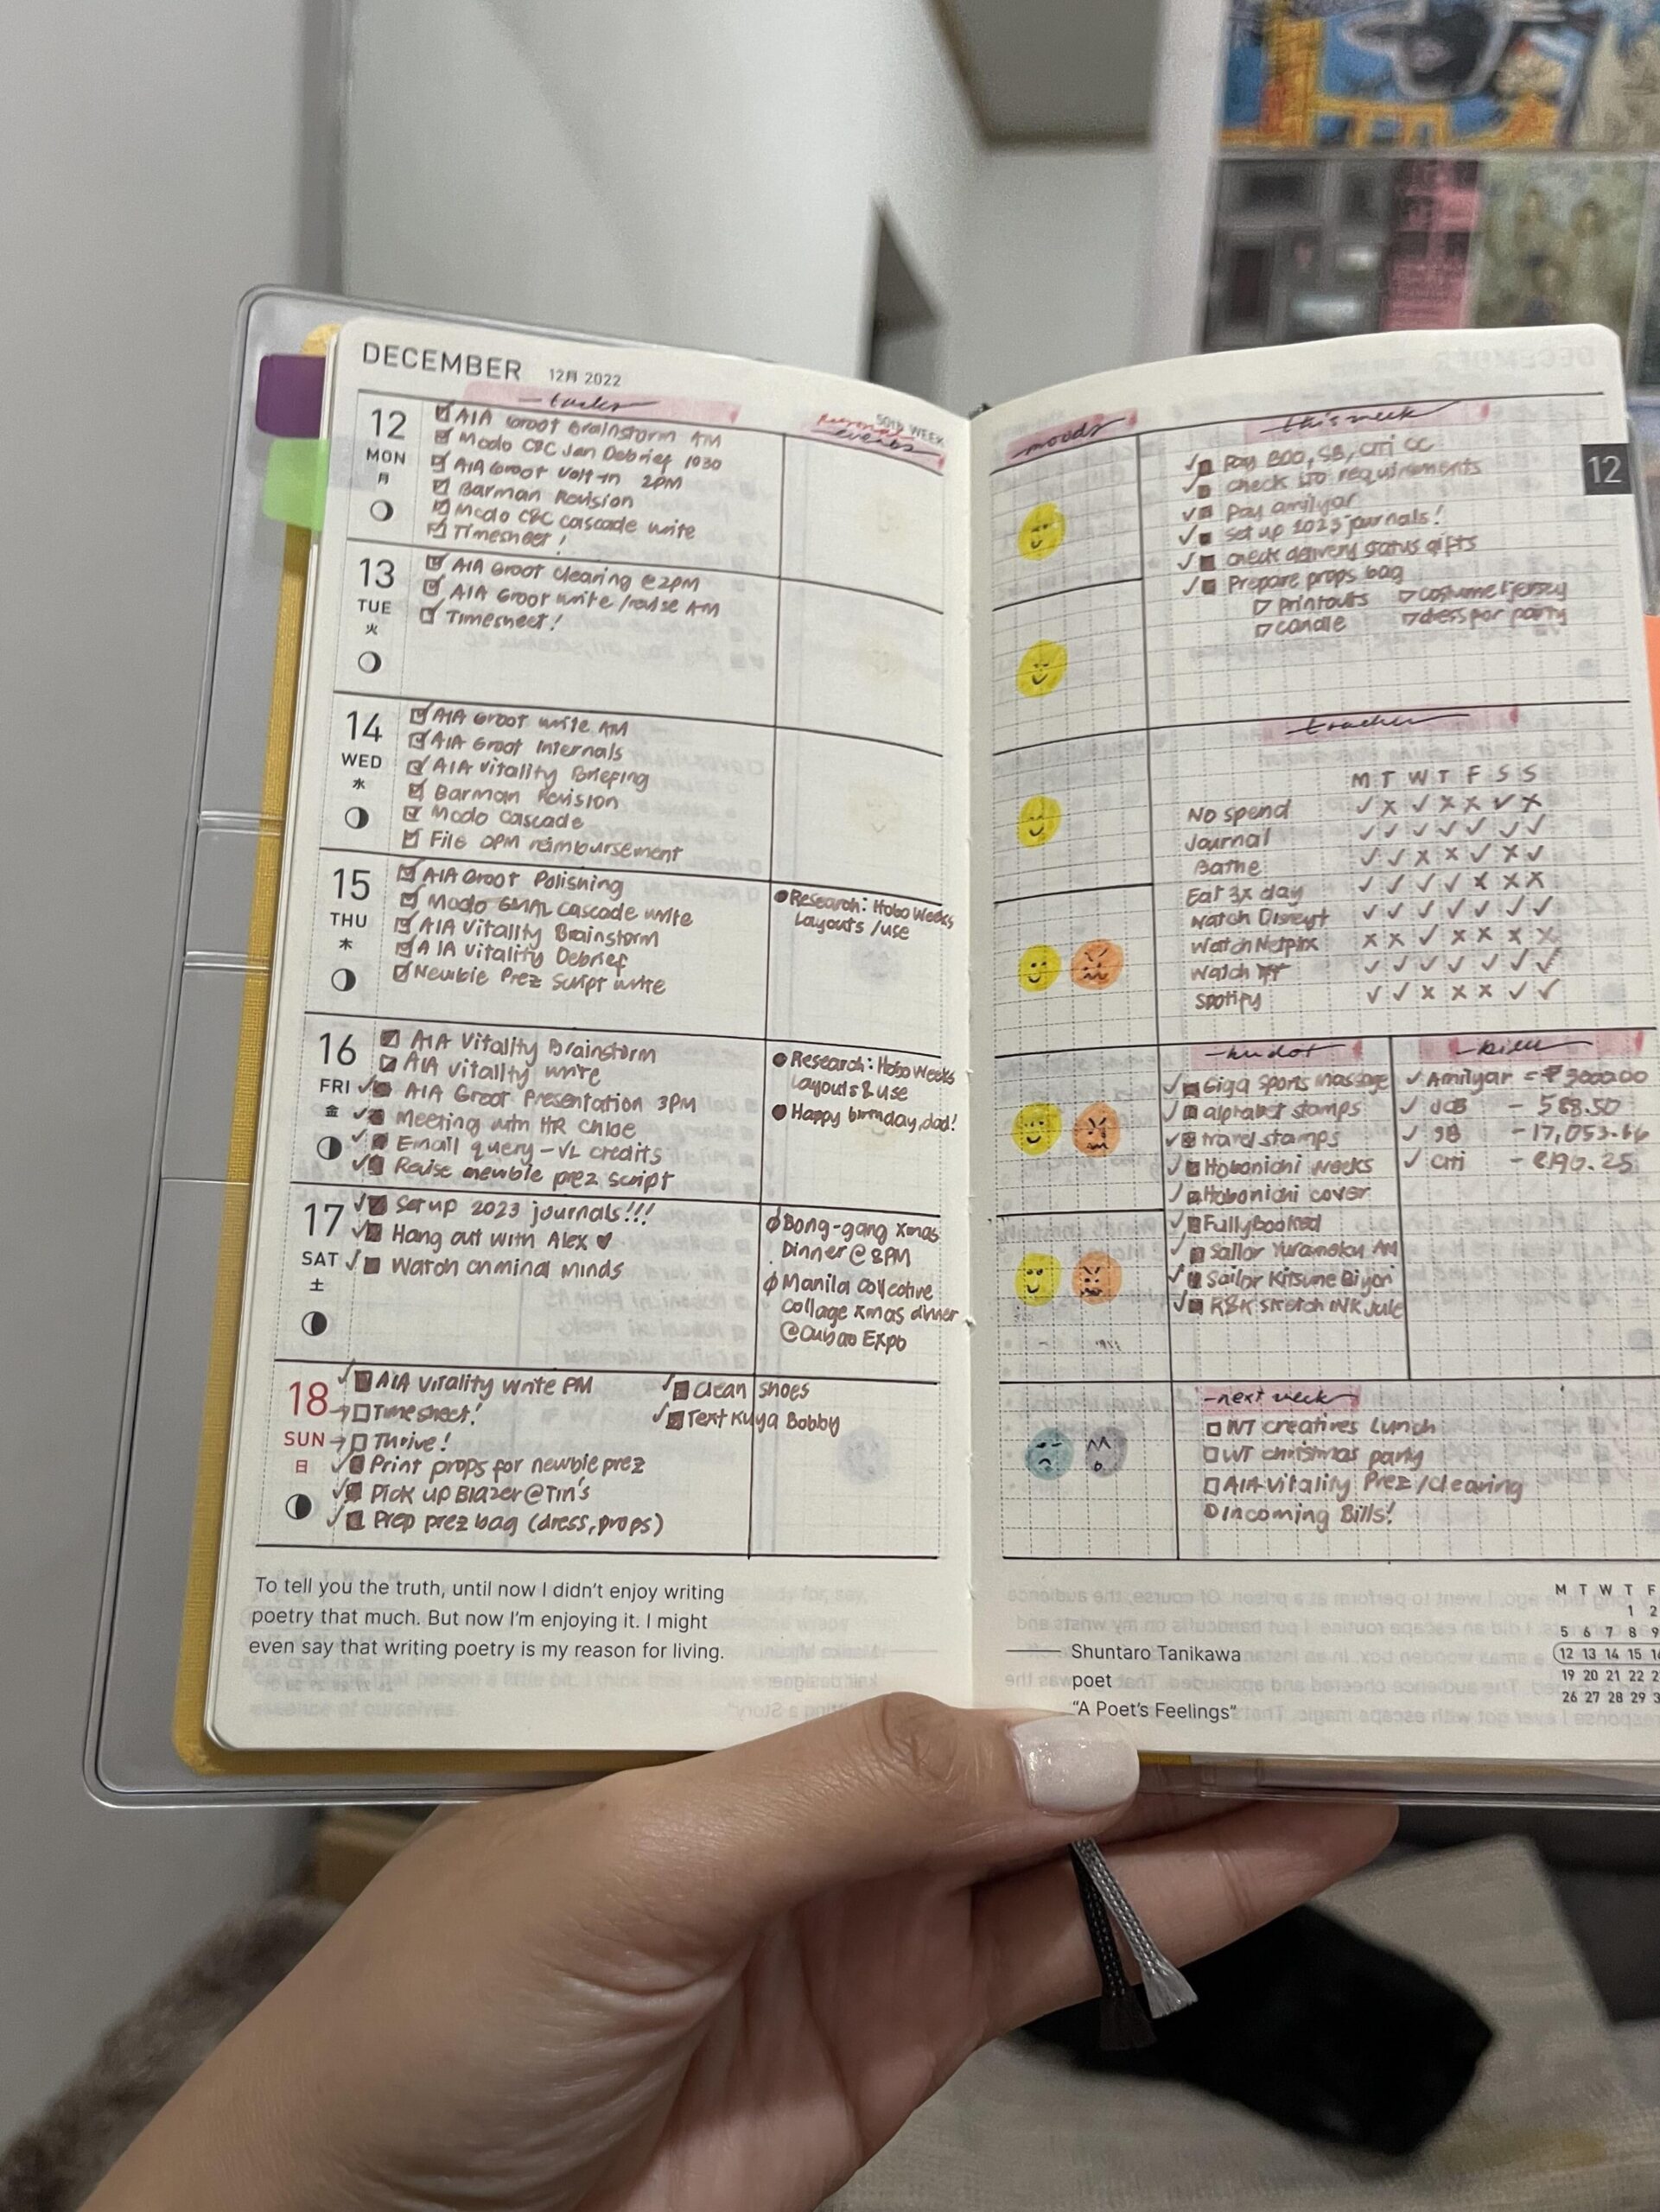 DECEMBER 12月 2022
tasks
50th WEEK
events
12
MON
月
AIA Groot Brainstorm AM
Modo CBC Jan Debrief 1030
AIA Groot Volt-in 2PM
Barman Revision
Modo CBC cascade write
Timesheet!
13
TUE
火
AIA Groot Clearing @2PM
AIA Groot write/revise AM
Timesheet!
14
WED
水
AIA Groot write AM
AIA Groot Internals
AIA Vitality Briefing
Barman Revision
Modo Cascade
File OPM reimbursement
15
THU
木
AIA Groot Polishing
Modo cascade write
AIA Vitality Brainstorm
AIA Vitality Debrief
Newbie Prez Script write
Research: Hobo Weeks
Layouts/use
16
FRI
金
AIA Vitality Brainstorm
AIA Vitality write
AIA Groot Presentation 3PM
Meeting with HR Chloe
Email query - VL credits
Revise newbie prez script
Research: Hobo Weeks
Layouts & use
Happy birthday, dad!
17
SAT
土
Set up 2023 journals!!!
Hang out with Alex ♥
Watch criminal minds
Bong-gang Xmas
Dinner @ 8PM
Manila Collective
Collage xmas dinner
@Cubao Expo
18
SUN
日
AIA Vitality write PM
→ Timesheet!
→ Thrive!
Print props for newbie prez
Pick up Blazer @ Tin's
Prep prez bag (dress, props)
Clean shoes
Text Kuya Bobby
To tell you the truth, until now I didn't enjoy writing
poetry that much. But now I'm enjoying it. I might
even say that writing poetry is my reason for living.
moods
this week
12
Pay BDO, SB, Citi CC
check requirements
Pay amilyar
set up 2023 journals!
check delivery status gifts
Prepare props bag
printouts costume/jersey
candle dress for party
tracker
M T W T F S S
No spend ✓ x ✓ x x ✓ x
Journal ✓ ✓ ✓ ✓ ✓ ✓ ✓
Bathe ✓ ✓ x x ✓ x ✓
Eat 3x day ✓ ✓ ✓ ✓ x x x
Watch Disney+ ✓ ✓ ✓ ✓ ✓ ✓ ✓
Watch Netflix x x ✓ x x x x
Watch YT ✓ ✓ ✓ ✓ ✓ ✓ ✓
Spotify ✓ ✓ x x x ✓ ✓
bills
Giga Sports Massage
alphabet stamps
travel stamps
Hobonichi Weeks
Hobonichi cover
Fullybooked
Sailor Yurameku AM
Sailor Kitsune Biyori
Amilyar = ₱3000.00
JCB - 588.50
SB - 17,053.66
Citi - 8190.25
next week
WT creatives Lunch
WT christmas party
AIA Vitality Prez/clearing
Incoming Bills!
Shuntaro Tanikawa
poet
"A Poet's Feelings"
M T W T F
1 2
5 6 7 8 9
12 13 14 15 16
19 20 21 22
26 27 28 29